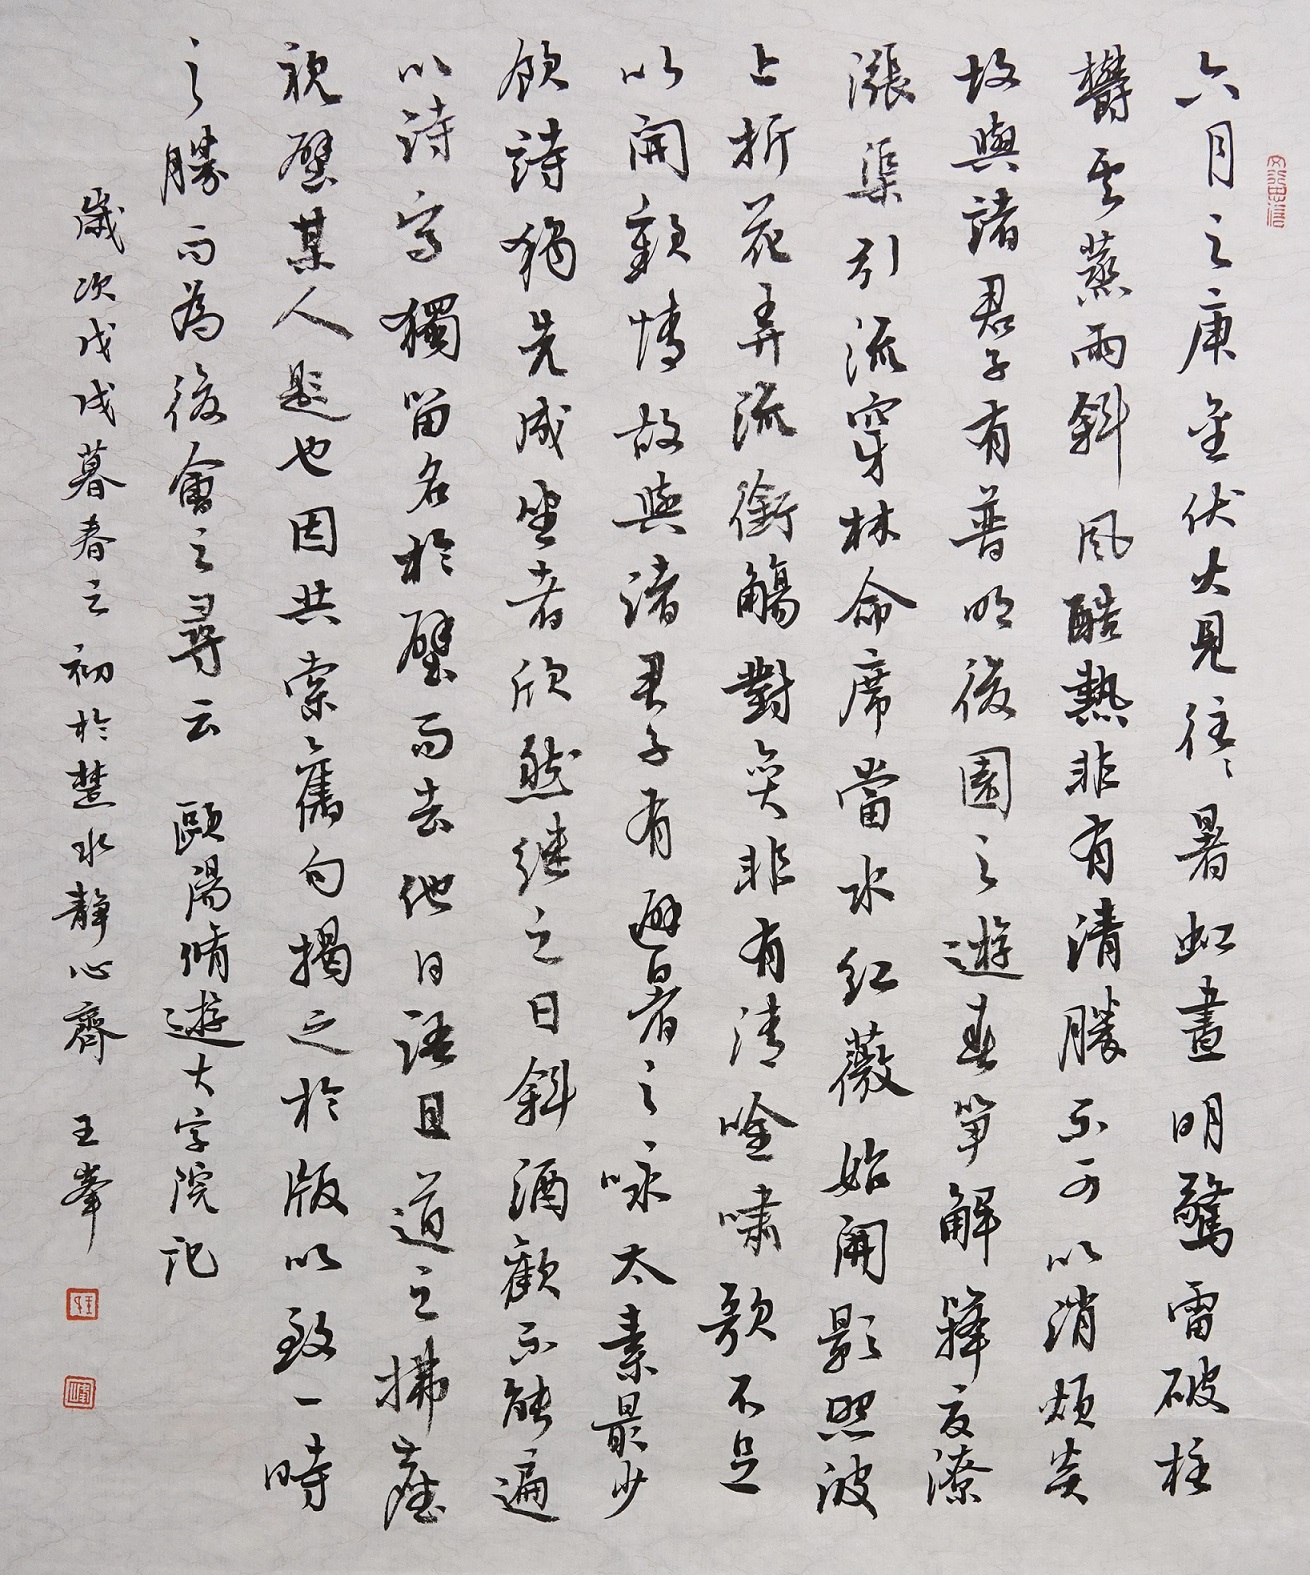 六月之庚金伏火見往〻暑虹晝明驚雷破柱
鬱雲蒸雨斜風酷熱非有清勝不可以消煩炎
故與諸君子有普明後園之遊春筍解籜夏潦
漲渠引流穿林命席當水紅薇始開影照波
上折花弄流銜觴對奕非有清唫嘯歌不足
以開歡情故與諸君子有避暑之咏太素最少
飲詩獨先成坐者欣然继之日斜酒歡不能遍
以詩寫獨留名於壁而去他日語且道之拂塵
視壁某人題也因共索舊句揭之於版以致一時
之勝而為後會之尋云 歐陽脩遊大字院記
歲次戊戌暮春之初於楚水靜心齋 王峯